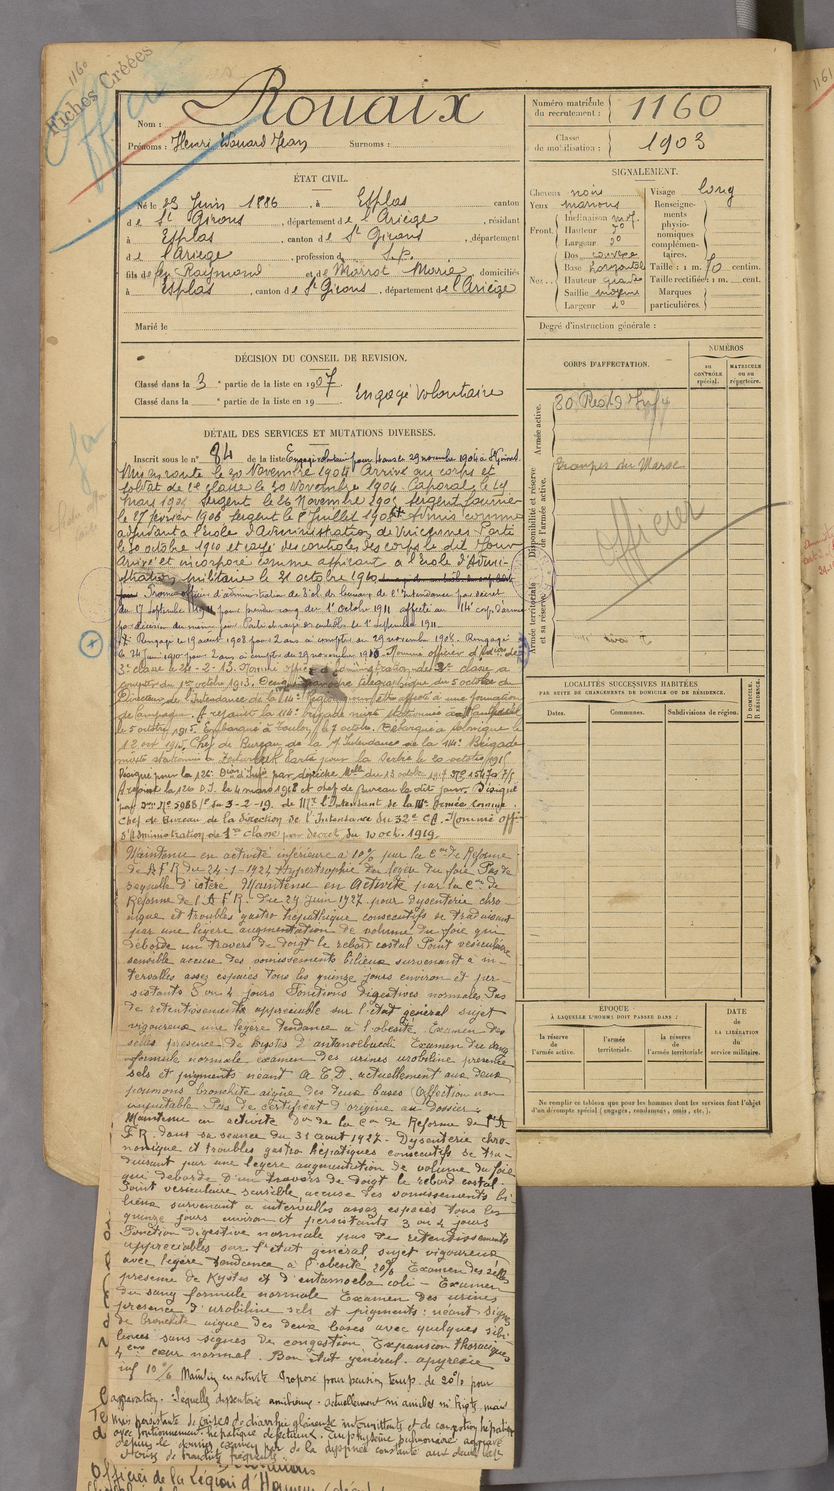 1160
Fiches Créées
Nom : Rouaix
Prénoms : Henri Edouard Jean Surnoms :
Numéro matricule du recrutement : 1160
Classe de mobilisation : 1903
ÉTAT CIVIL.
Né le 23 Juin 1886, à Esplas canton
de St Girons, département de l'Ariège, résidant
à Esplas, canton de St Girons, département
de l'Ariège, profession de S.P.
fils de Raymond et de Marrot Marie, domiciliés
à Esplas, canton de St Girons, département de l'Ariège
Marié le
SIGNALEMENT.
Cheveux noirs Visage long
Yeux marrons
Front. Inclinaison moy.
Hauteur
Largeur
Nez. Dos
Base horizontale
Hauteur grande
Saillie moyenne
Largeur
Renseignements physionomiques complémentaires.
Taille : 1 m. 70 centim.
Taille rectifiée : 1 m. cent.
Marques particulières.
Degré d'instruction générale :
DÉCISION DU CONSEIL DE REVISION.
Classé dans la 3e partie de la liste en 1907. Engagé Volontaire
Classé dans la e partie de la liste en 19
CORPS D'AFFECTATION.
NUMÉROS
au CONTRÔLE spécial.
MATRICULE ou au répertoire.
Armée active.
Troupes du Maroc
Disponibilité et réserve de l'armée active.
officier
Armée territoriale et sa réserve.
DÉTAIL DES SERVICES ET MUTATIONS DIVERSES.
Inscrit sous le n° 84 de la liste Engagé volontaire pour 4 ans le 29 novembre 1904 à St Girons.
Mis en route le 30 Novembre 1904 Arrivé au corps et
soldat de 2e classe le 30 Novembre 1904. Caporal le 24
mars 1905 Sergent le 26 Novembre 1905 Sergent fourrier
le 27 février 1906 Sergent le 8 Juillet 1908 Admis comme
adjudant à l'école d'Administration de Vincennes. Parti
le 30 octobre 1910 et rayé des contrôles des corps le dit Jour
Arrivé et incorporé comme aspirant à l'école d'Admini-
stration militaire le 31 octobre 1910
Promu officier d'administration de 3e cl. des bureaux de l'Intendance par décret
du 17 septembre 1911 pour prendre rang du 1er octobre 1911 affecté au 14e corps d'armée
par décision du même jour. Parti et rayé des contrôles le 1er septembre 1911.
Rengagé le 19 août 1908 pour 2 ans à compter du 29 novembre 1908. Rengagé
le 24 Juin 1910 pour 2 ans à compter du 29 novembre 1910. Nommé officier d'Admon de
3e classe le 24-2-13. Nommé officier d'administration de 2e classe à
compter du 1er octobre 1913. télégraphique du 5 octobre du
Directeur de l'Intendance de la 14e Région pour être affecté à une formation
de campagne. A rejoint la 114e brigade mixte stationnée à
le 5 octobre 1915. Embarqué à Toulon le 7 octobre. Débarqué à Salonique le
12 oct 1915. Chef de Bureau de la s/Intendance de la 114e Brigade
mixte stationnée à Zeitenlick Parti pour la Serbie le 20 octobre 1915
Désigné pour la 126e Dion d'Infie par dépêche Mlle du 13 octobre 1917
Rejoint la 126 D.I. le 4 mars 1918 et chef de Bureau le dit jour. Désigné
par N° 5988/ du 3-2-19. de Mr l'Intendant de la Armée comme
Chef de Bureau de la direction de l'Intendance du 32e CA. Nommé offr
d'Administration de 1re classe par décret du 10 oct. 1919.
Maintenu en activité inférieure à 10% par la Con de Réforme
de A F R du 24-1-1924 Hypertrophie du foie Pas de
séquelle d'ictère. Maintenu en Activité par la Con de
Réforme de l'A F R. du 29 Juin 1927 pour dysenterie chro-
nique et troubles gastro hépathique consécutifs se traduisant
par une légère augmentation de volume du foie qui
déborde un travers de doigt le rebord costal Point vésiculaire
sensible accuse des vomissements bilieux survenant à in-
tervalles assez espacés tous les quinze jours environ et per-
sistants 3 ou 4 jours Fonctions digestives normales Pas
de retentissements appréciable sur l'état général sujet
vigoureux une légère tendance à l'obésité Examen des
selles présence de Kystes d'antamoeba coli Examen du sang
formule normale examen des urines urobiline présence
sels et pigments néant A E D. actuellement aux deux
poumons bronchite aigüe des deux bases (Affection non
imputable Pas de certificat d'origine au dossier.
Maintenu en activité Don de la Con de Réforme de l'A
F R. dans sa séance du 31 août 1927. Dysenterie chro-
nonique et troubles gastro hépatiques consécutifs se tra-
duisant par une légère augmentation de volume du foie
qui déborde d'un travers de doigt le rebord costal.
Point vésiculaire sensible, accuse des vomissements bi-
lieux survenant à intervalles assez espacés tous les
quinze jours environ et persistants 3 ou 4 jours
Fonction digestive normale pas de retentissements
appréciables sur l'état général sujet vigoureux
avec légère tendance à l'obésité 20% Examen des selles
présence de Kystes et d'entamoeba coli - Examen
du sang formule normale Examen des urines
présence d'urobiline sels et pigments : néant Signes
de bronchite aigue des deux bases avec quelques sibi-
lances sans signes de congestion. Expansion thoracique
4 cms cœur normal. Bon état général. apyrexie
inf 10% Maintien en activité Proposé pour pension temp. de 20% pour
aggravation. Séquelles dysenterie amibienne. Actuellement ni amibes ni Kystes mais
mais persistante de crises de diarrhée glaireuse intermittents et de congestion hépatique
avec fonctionnement hépatique défectueux. Emphysème pulmonaire aggravé
depuis le dernier examen par de la dyspnée constante aux deux bases
de bronchite fréquents.
Officier de la Légion d'Honneur
LOCALITÉS SUCCESSIVES HABITÉES
PAR SUITE DE CHANGEMENTS DE DOMICILE OU DE RÉSIDENCE.
Dates.
Communes.
Subdivisions de région.
D DOMICILE.
R RÉSIDENCE.
ÉPOQUE
À LAQUELLE L'HOMME DOIT PASSER DANS :
la réserve de l'armée active.
l'armée territoriale.
la réserve de l'armée territoriale
DATE de LA LIBÉRATION du service militaire.
Ne remplir ce tableau que pour les hommes dont les services font l'objet
d'un décompte spécial (engagés, condamnés, omis, etc.).